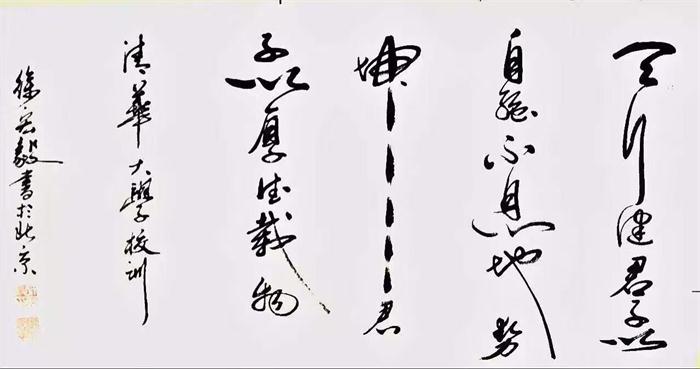 天行健君子以
自强不息地势
坤君
子以厚德载物
清華大學校训
徐宏毅書於北京